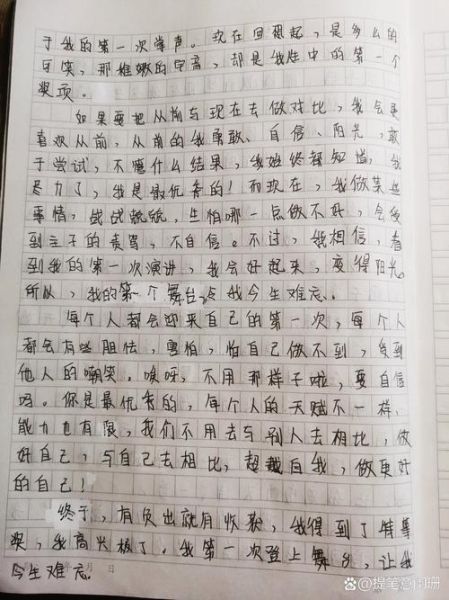 于我的第一次掌声。现在回想起，是多么的
可笑，那稚嫩的字音，却是我生中的第一个
奖项。
如果要把从前与现在去做对比，我会更
喜欢从前，从前的我勇敢、自信、阳光，敢
于尝试，不应什么结果，我始终都知道，我
尽力了，我是最优秀的！而现在，我做某些
事情，战战兢兢，生怕哪一点做不好，会受
到主子的责骂，不自信。不过，我相信，看
到我的第一次演讲，我会好起来，变得阳光。
所以，我的第一个舞台，令我今生难忘。
每个人都会迎来自己的第一次，每个人
都会有些胆怯，害怕，怕自己做不到，受到
他人的嘲笑。哎呀，不用那样子啦，要自信
吗。你是最优秀的，每个人的天赋不一样、
能力也有限，我们不用去与别人去相比，做
好自己，与自己去相比，超越自我，做更好
的自己！
终于，有负出就有收获，我得到了特等
奖，我高兴极了。我第一次登上舞台，让我
今生难忘。
月 日
提笔容闲册